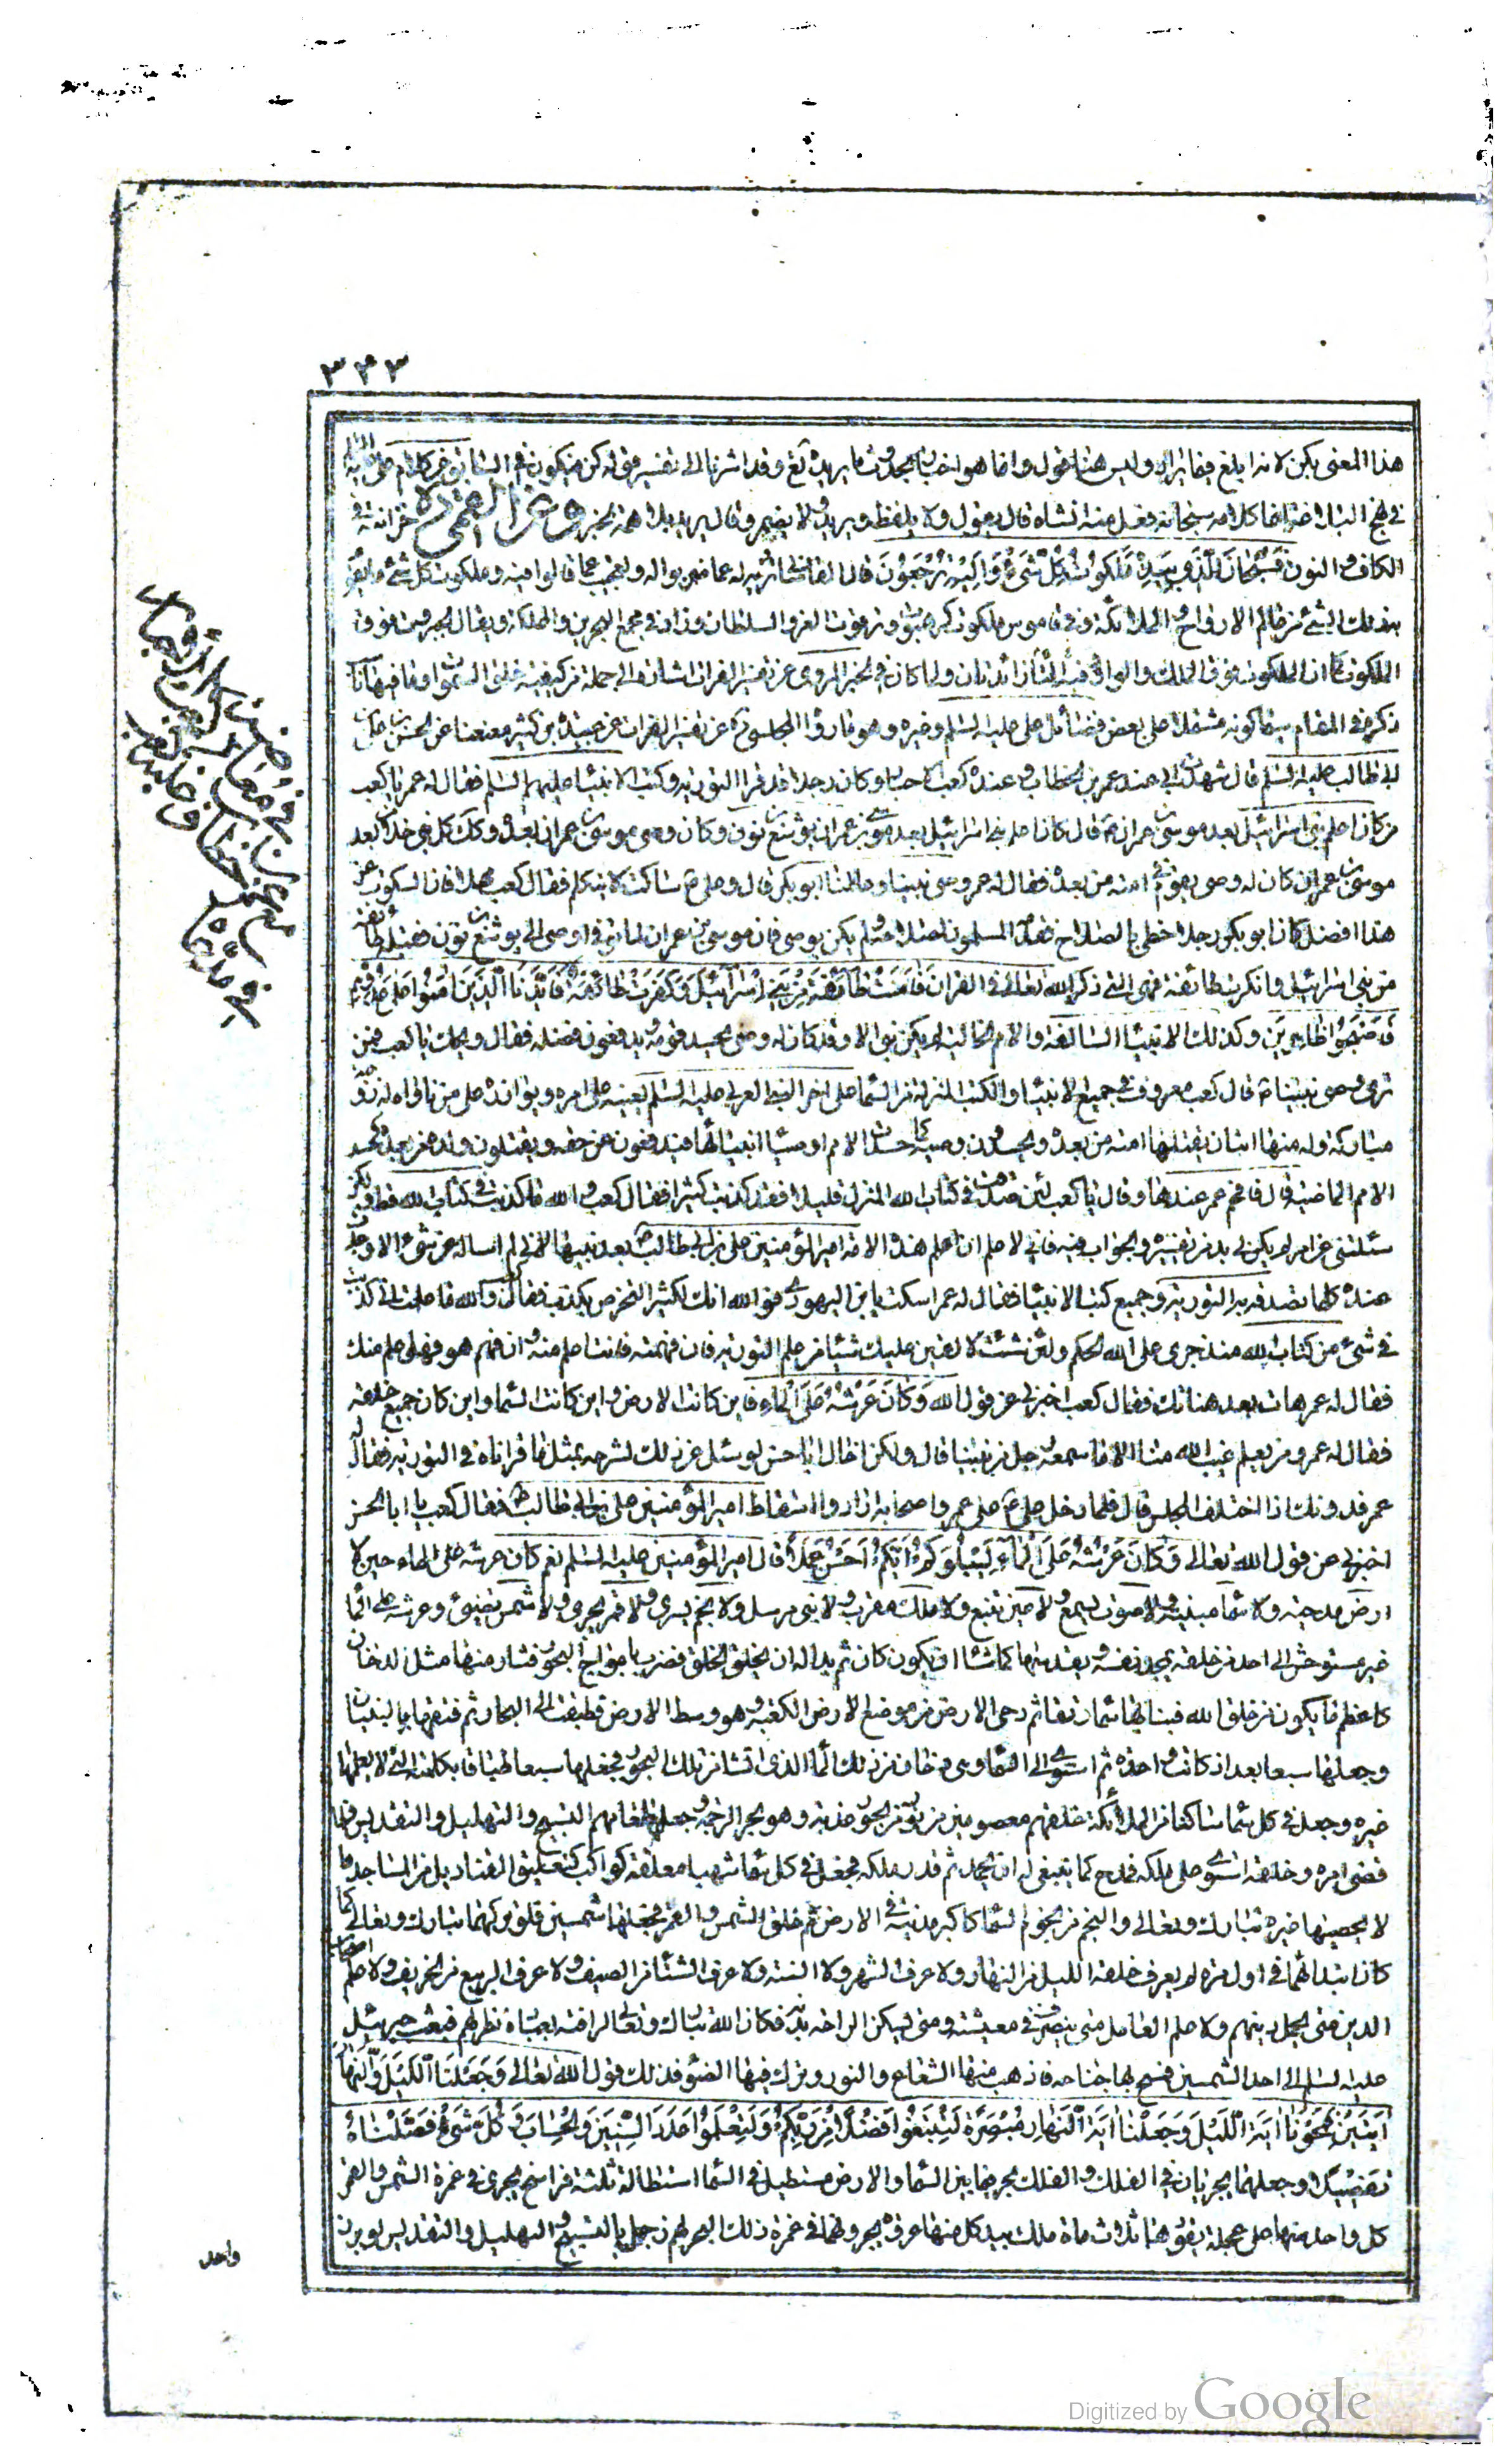 ٣٣٣
هذا المعنى بكن لانه ابلغ فيما يراد وليس هنا قول وانما هو اخبار بحدوث ما يريده تع وقد اشرنا الى تفسير قوله كن فيكون في
في نهج البلاغة انما كلامه سبحانه فعل منه انشاه قال يقول ولا يلفظ ويريد ولا يضمر وقال يريد بلا همة
الكاف والنون فَسُبْحَانَ الَّذِي بِيَدِهِ مَلَكُوتُ كُلِّ شَيْءٍ وَإِلَيْهِ تُرْجَعُونَ قال القاضي تنزيه له عما ضربوا له وتعجيب عما قالوا فيه وملكوت كل شئ ما يقوم
به ذلك الشئ من عالم الارواح والملائكة وفي قاموس ملكوت كرهبوت وترقوت العز والسلطان وزاد في مجمع البحرين والمملكة ويقال الجبروت فوق
الملكوت كما ان الملكوت فوق الملك والواو والتاء زائدتان ولما كان في الخبر المروى عن تفسير الفرات اشارة الى جملة من كيفية خلق السموات وما فيها
ذكره في المقام سيما كونه مشتملا على بعض فضائل على عليه السلم وغيره وهو ما رواه المجلسي ره عن تفسير الفرات عن عبيد بن كثير معنعنا عن الحسن بن على بن
ابى طالب عليه السلم قال شهدت ابى عند عمر بن الخطاب وعنده كعب الاحبار وكان رجلا قد قرا التورية وكتب الانبياء عليهم السلم فقال له عمر يا كعب
من كان اعلم بنى اسرائيل بعد موسى بن عمران ع قال كان اعلم بنى اسرائيل بعد موسى بن عمران يوشع بن نون وكان وصى موسى بن عمران بعده وكذلك كل نبى خلا بعد
موسى بن عمران كان له وصى يقوم في امته من بعده فقال له عمر فمن وصى نبينا وعالمنا ابو بكر قال وعلى ع ساكت لا يتكلم فقال كعب مهلا فان السكوت عن
هذا افضل كان ابو بكر رجلا خطى بالصلاح فقدمه المسلمون لصلاحه ولم يكن بوصى فان موسى بن عمران لما توفى اوصى الى يوشع بن نون فقبله طائفة
من بنى اسرائيل وانكرت طائفة فهى التى ذكر الله تعالى في القران فَآمَنَتْ طَائِفَةٌ مِنْ بَنِي إِسْرَائِيلَ وَكَفَرَتْ طَائِفَةٌ فَأَيَّدْنَا الَّذِينَ آمَنُوا عَلَى عَدُوِّهِمْ
فَأَصْبَحُوا ظَاهِرِينَ وكذلك الانبياء السالفة والامم الخالية لم يكن نبى الا وقد كان له وصى يحسده قومه ويدفعون فضله فقال ويحك يا كعب فمن
ترى وصى نبينا ع قال كعب معروف في جميع كتب الانبياء والكتب المنزلة من السماء على اخو النبى العربى عليه السلم يعينه على امره ويوازره على من ناواه له زوجة
مباركة وله منها ابنان يقتلهما امته من بعده ويحسدون وصيه كما حسدت الامم اوصياء انبيائها فيدفعون عن حقه ويقتلون ولده من بعده كحسد
الامم الماضية قال فافحم عمر عندها وقال يا كعب لئن صدقت في كتاب الله المنزل قليلا فقد كذبت كثيرا فقال كعب والله ما كذبت في كتاب الله قط ولكن
سئلتنى عن امر لم يكن لى بد من تفسيره والجواب فيه فانى لاعلم ان اعلم هذه الامة امير المؤمنين على بن ابى طالب بعد نبيها لانى لم اساله عن شئ الا وجدت
عنده علما تصدقه به التورية وجميع كتب الانبياء فقال له عمر اسكت يابن اليهودى فوالله انك لكثير التخرص بكذب فقال كعب والله ما علمت انى كذبت
في شئ من كتاب الله منذ جرى على الله الحكم ولئن شئت لالقين عليك شيئا من علم التورية فان فهمته فانت اعلم منه وان فهم هو فهو اعلم منك
فقال له عمر هات بعض هناتك فقال كعب اخبرنى عن قول الله وَكَانَ عَرْشُهُ عَلَى الْمَاءِ فاين كانت الارض واين كانت السماء واين كان جميع خلقه
فقال له عمر ومن يعلم غيب الله منا الا ما سمعه رجل من نبينا قال ولكن اخال ابا حسن لو سئل عن ذلك لشرحه بمثل ما قراناه في التورية فقال له
عمر فدونك اذا اختلف المجلس قال فلما دخل على ع على عمر واصحابه ارادوا اسقاط امير المؤمنين على بن ابى طالب ع فقال كعب يا ابا الحسن
اخبرنى عن قول الله تعالى وَكَانَ عَرْشُهُ عَلَى الْمَاءِ لِيَبْلُوَكُمْ أَيُّكُمْ أَحْسَنُ عَمَلًا قال امير المؤمنين عليه السلم نعم كان عرشه على الماء حين لا
ارض مدحية ولا سماء مبنية ولا صوت يسمع ولا عين تنبع ولا ملك مقرب ولا نبى مرسل ولا نجم يسرى ولا قمر يجرى ولا شمس تضيئ وعرشه على الماء
غير مستوحش الى احد من خلقه يمجد نفسه ويقدسها كما شاء ان يكون كان ثم بدا له ان يخلق الخلق فضرب بامواج البحور فثار منها مثل الدخان
كاعظم ما يكون من خلق الله فبنا بها سماء رتقا ثم دحى الارض من موضع الكعبة وهو وسط الارض فطبقت الى البحار ثم فتقها بالبنيان
وجعلها سبعا بعد اذ كانت واحدة ثم استوى الى السماء وهى دخان من ذلك الماء الذى انشا من تلك البحور فجعلها سبعا طباقا بكلمته التى لا يعلمها
غيره وجعل في كل سماء ساكنا من الملائكة خلقهم معصومين من نور من بحور عذبة وهو بحر الرحمة وجعل طعامهم التسبيح والتهليل والتقديس فلما
قضى امره وخلقه استوى على ملكه فمدح كما ينبغى له ان يحمد ثم قدر ملكه فجعل في كل سماء شهبا معلقة كواكب كتعليق القناديل من المساجد ما
لا يحصيها غيره تبارك وتعالى والنجم من نجوم السماء كاكبر مدينة في الارض ثم خلق الشمس والقمر فجعلهما شمسين فلو تركهما تبارك وتعالى كما
كان ابتداهما في اول مرة لم يعرف خلقه الليل من النهار ولا عرف الشهر ولا السنة ولا عرف الشتاء من الصيف ولا عرف الربيع من الخريف ولا علم اصحاب
الدين متى يحل دينهم ولا علم العامل متى يتصرف في معيشته ومتى يسكن لراحة بدنه فكان الله تبارك وتعالى ارافة بعباده نظر لهم فبعث جبرئيل
عليه السلم الى احد الشمسين فمسح بها جناحه فاذهب منها الشعاع والنور وترك فيها الضوء فذلك قول الله تعالى وَجَعَلْنَا اللَّيْلَ وَالنَّهَارَ
آيَتَيْنِ فَمَحَوْنَا آيَةَ اللَّيْلِ وَجَعَلْنَا آيَةَ النَّهَارِ مُبْصِرَةً لِتَبْتَغُوا فَضْلًا مِنْ رَبِّكُمْ وَلِتَعْلَمُوا عَدَدَ السِّنِينَ وَالْحِسَابَ وَكُلَّ شَيْءٍ فَصَّلْنَاهُ
تَفْصِيلًا وجعلهما يجريان في الفلك والفلك بحر فيما بين السماء والارض مستطيل في السماء استطالته ثلثة فراسخ يجرى في غمرة الشمس والقمر
كل واحد منهما على عجلة يقودهما ثلاث ماة ملك بيد كل منها عروة يجرونهما في غمرة ذلك البحر لهم زجل بالتسبيح والتهليل والتقديس لو برز
واحد
Digitized by Google